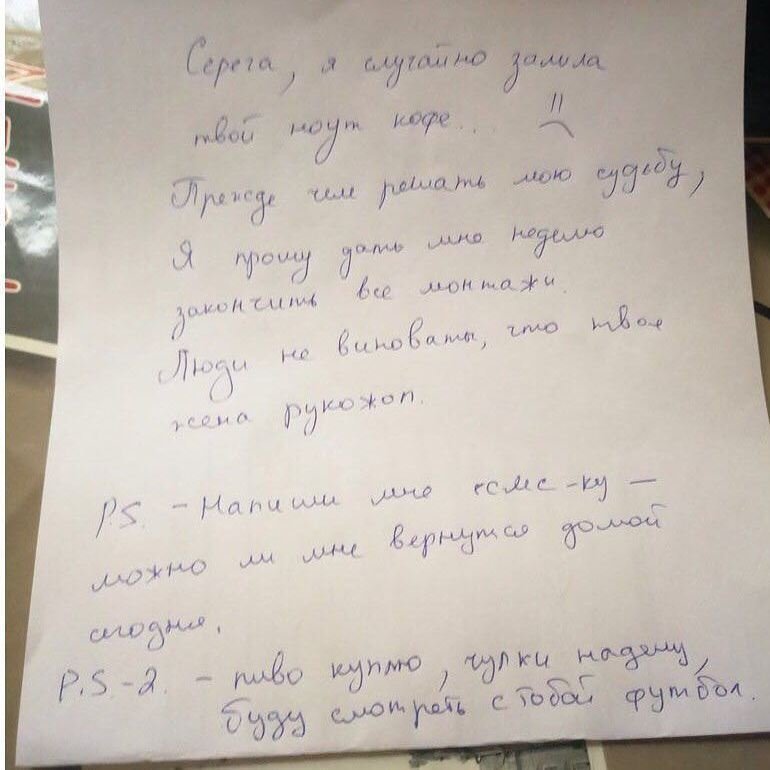 Серега, я случайно залила
твой ноут кофе...
Прежде чем решать мою судьбу,
Я прошу дать мне неделю
закончить все монтажи.
Люди не виноваты, что твоя
жена рукожоп.
P.S. - Напиши мне смс-ку -
можно ли мне вернутся домой
сегодня.
P.S.-2. - пиво куплю, чулки надену,
буду смотреть с тобой футбол.